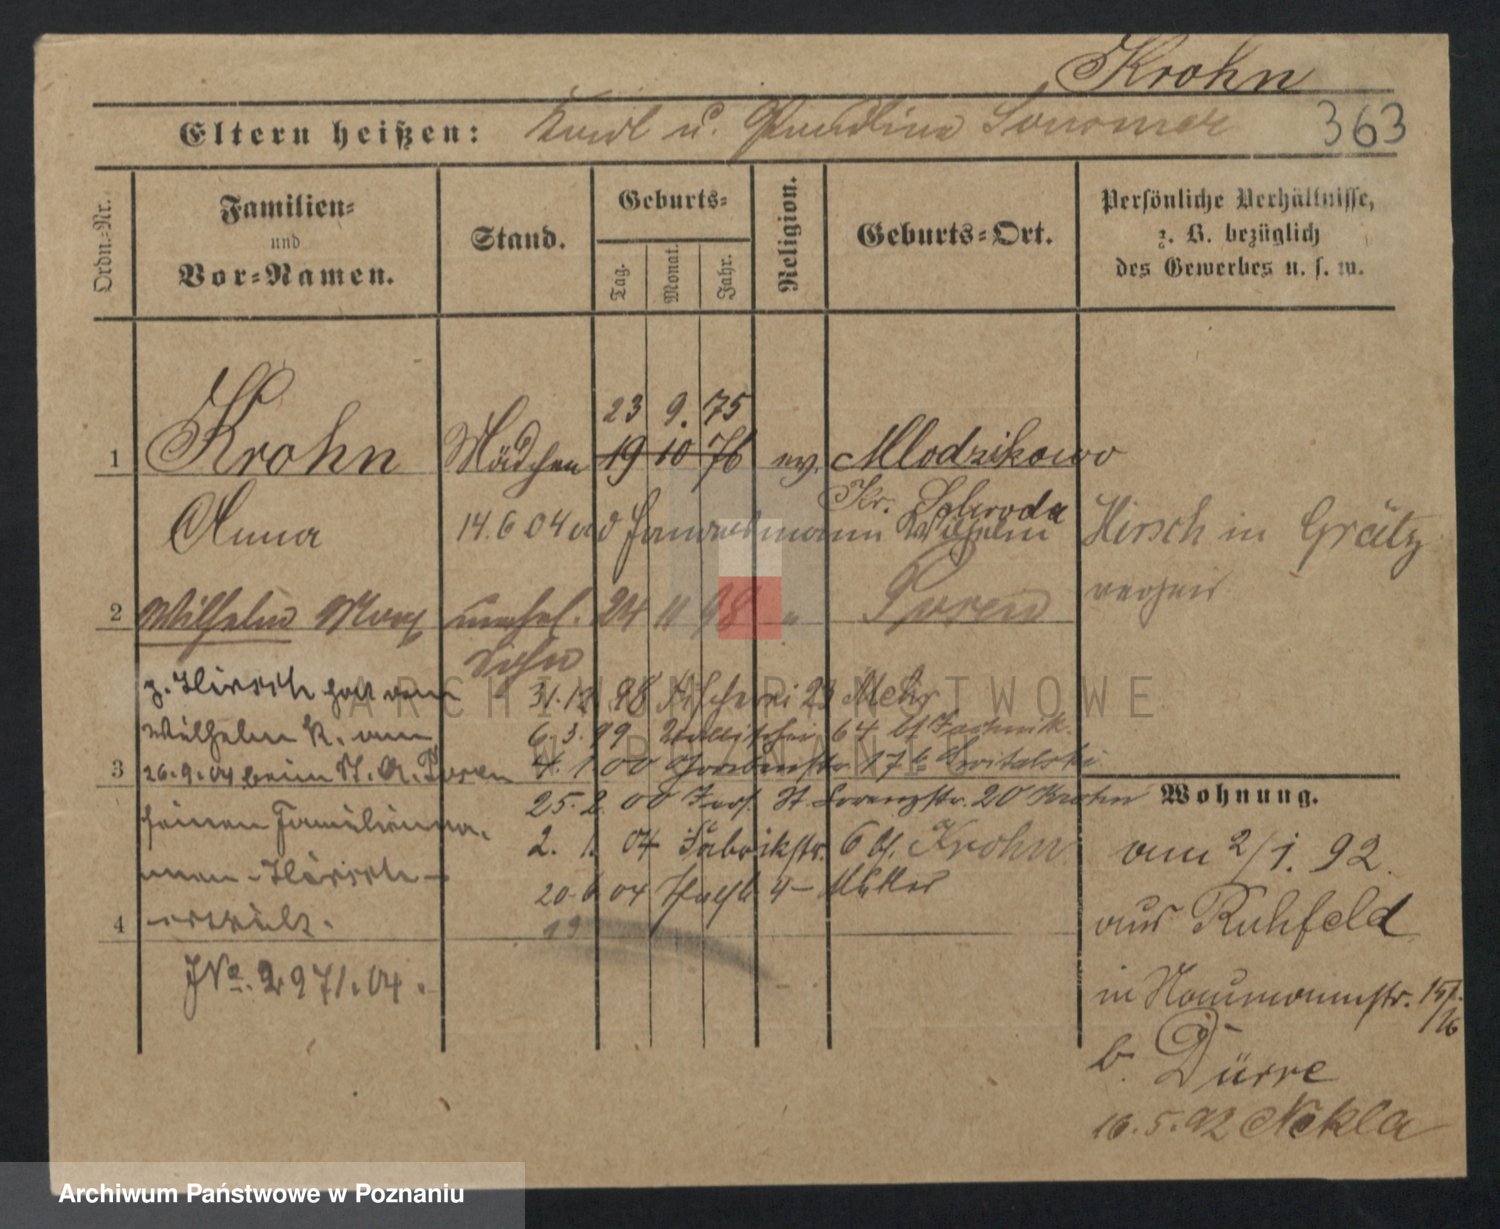 Krohn
Eltern heißen: Karl u. Paulina Sommer
363
Ordn.-Nr.
Familien-
und
Vor-Namen.
Stand.
Geburts-
Tag.
Monat.
Jahr.
Religion.
Geburts-Ort.
Persönliche Verhältnisse,
z. B. bezüglich
des Gewerbes u. s. w.
23 9. 75
1 Krohn Mädchen 19 10 76 ev. Mlodzikowo
Kr. Schroda
Anna 14.6.04 Wilhelm Hirsch in Grätz
2 Wilhelm Max unehel. 24 11 98 " Posen
Sohn
z. Hirsch hat dem 31.12. 98 23 Mehr
Wilhelm K. am 6.3.99 64 bei
3 26.9.04 beim St. A. Posen 4. 1. 00 Grabenstr. 17
seinen Familienna- 25.2. 00 St. Lorenzstr. 20 Krohn
Wohnung.
men - Hirsch - 2. 1. 04 Fabrikstr. 6 bei Krohn
am 2/1. 92.
4 erteilt. 20.6 04 4 - Müller
19
aus Ruhfeld
JNo. 2971.04.
in Naumannstr. 15/16
b. Dürre
16.5.92 Nekla
ARCHIWUM PAŃSTWOWE
W POZNANIU
Archiwum Państwowe w Poznaniu